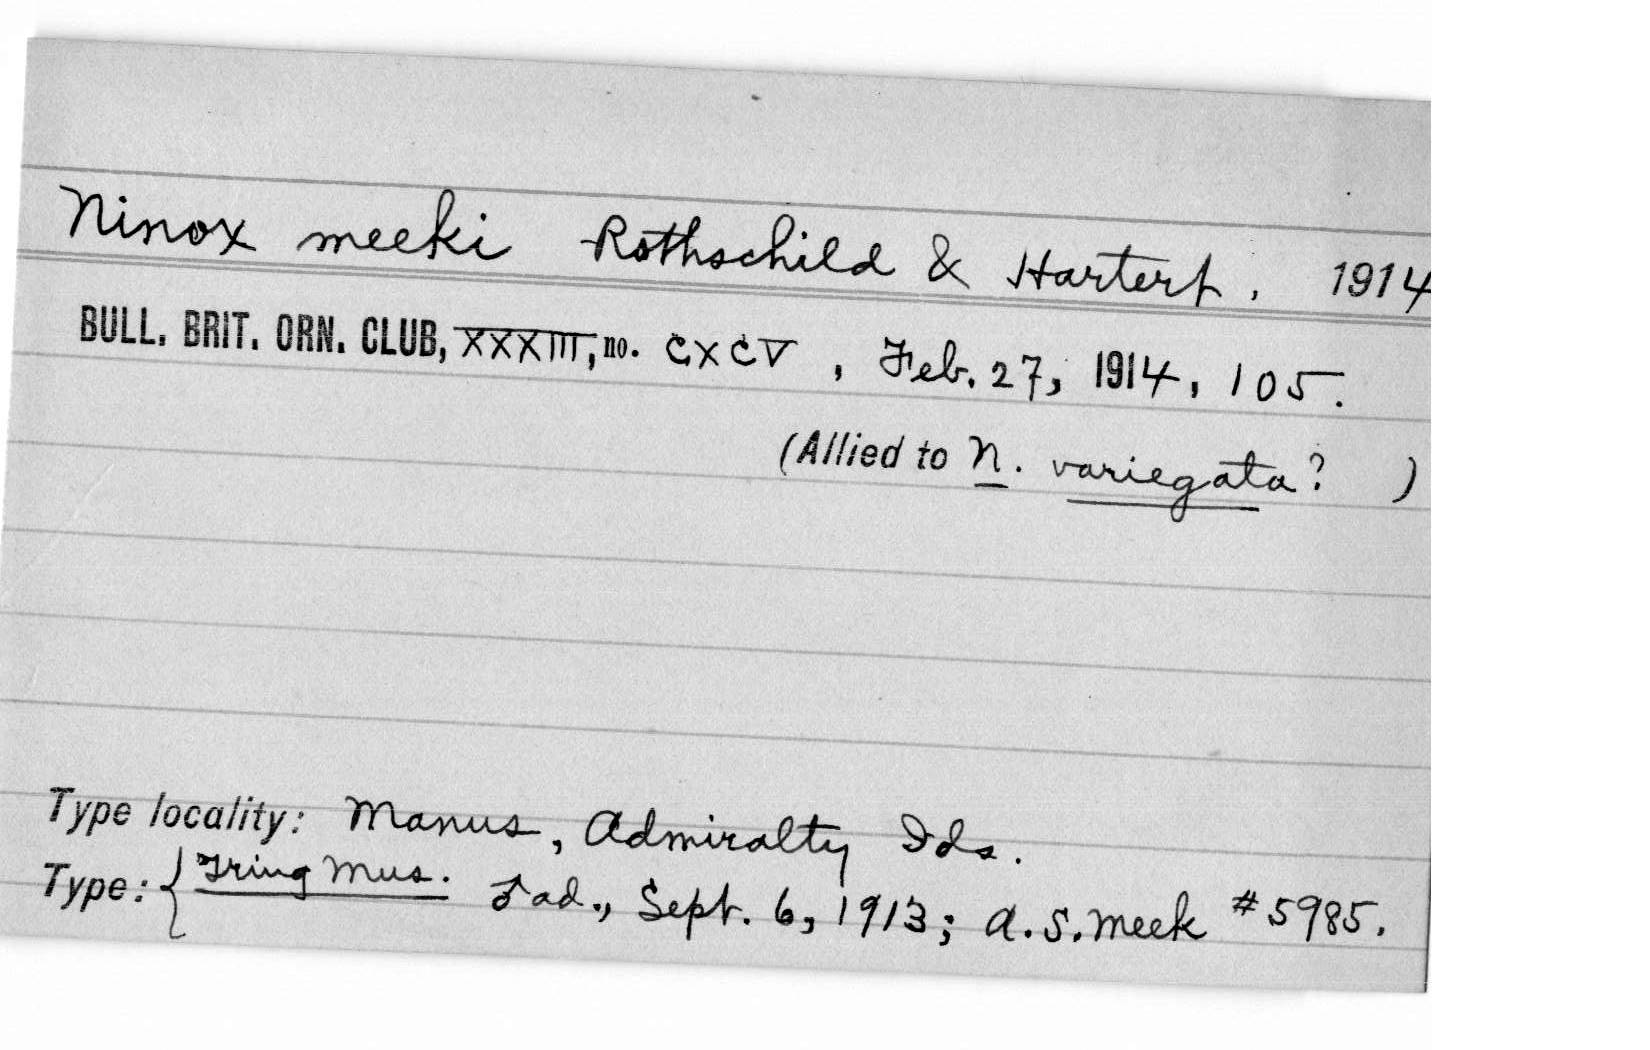 Ninox meeki Rothschild & Hartert, 1914
BULL. BRIT. ORN. CLUB, XXXIII, no. CXCV, Feb. 27, 1914, 105.
(Allied to N. variegata? )
Type locality: Manus, Admiralty Ids.
Type: { Tring Mus. ♂ ad., Sept. 6, 1913; A.S. Meek #5985.